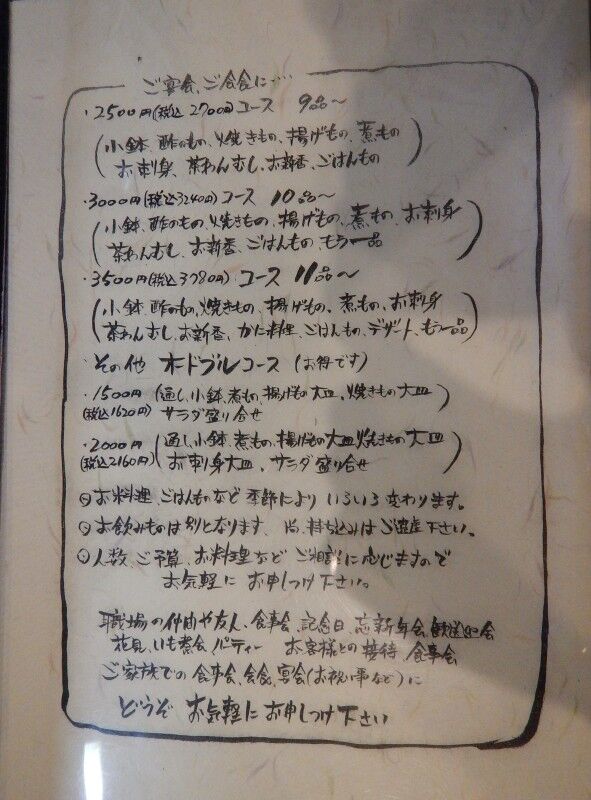 ご宴会、ご会食に…
・2500円(税込2700円)コース 9品〜
(小鉢、酢のもの、焼きもの、揚げもの、煮もの
お刺身、茶わんむし、お新香、ごはんもの)
・3000円(税込3240円)コース 10品〜
(小鉢、酢のもの、焼きもの、揚げもの、煮もの、お刺身
茶わんむし、お新香、ごはんもの、もう一品)
・3500円(税込3780円)コース 11品〜
(小鉢、酢のもの、焼きもの、揚げもの、煮もの、お刺身
茶わんむし、お新香、かに料理、ごはんもの、デザート、もう一品)
・その他 オードブルコース (お得です)
・1500円 (通し、小鉢、煮もの、揚げもの大皿、焼きもの大皿
(税込1620円) サラダ盛り合せ)
・2000円 (通し、小鉢、煮もの、揚げもの大皿、焼きもの大皿
(税込2160円) お刺身大皿、サラダ盛り合せ)
お料理、ごはんものなど季節によりいろいろ変わります。
お飲みものは別となります、尚、持ち込みはご遠慮下さい。
人数、ご予算、お料理など ご相談に応じますので
お気軽に お申しつけ下さい。
職場の仲間や友人、食事会、記念日、忘新年会、歓送迎会
花見、いも煮会、パーティー お客様との接待、食事会
ご家族での食事会、会食、宴会(お祝い事など)に
どうぞ お気軽にお申しつけ下さい